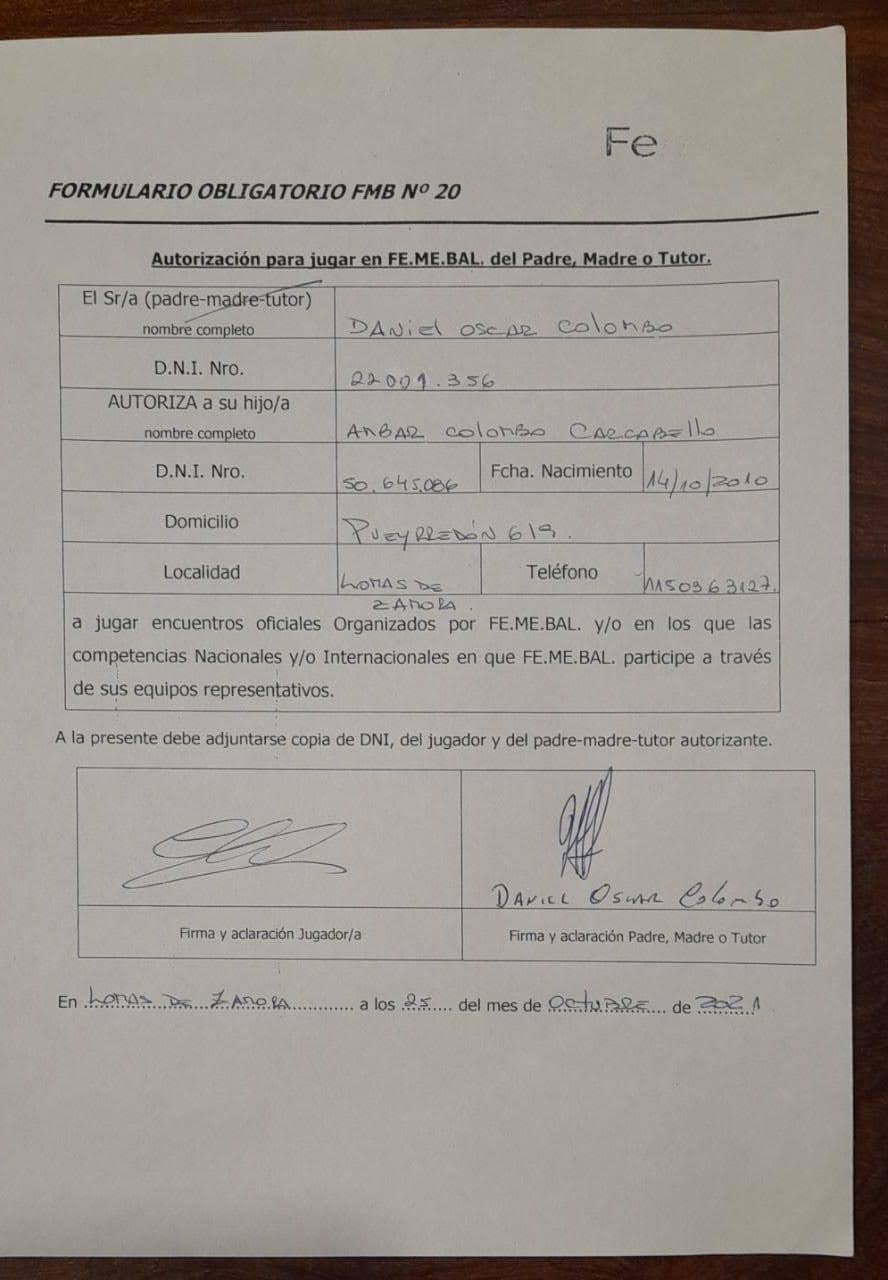 Fe
FORMULARIO OBLIGATORIO FMB Nº 20
Autorización para jugar en FE.ME.BAL. del Padre, Madre o Tutor.
El Sr/a (padre-madre-tutor)
nombre completo
DANiel OSCAR Colombo
D.N.I. Nro.
22001.356
AUTORIZA a su hijo/a
nombre completo
AMBAR Colombo CARCABEllo
D.N.I. Nro.
50.645.086
Fcha. Nacimiento
14/10/2010
Domicilio
PUEYRREDÓN 619.
Localidad
LOMAS DE
ZAMORA.
Teléfono
1150363127.
a jugar encuentros oficiales Organizados por FE.ME.BAL. y/o en los que las
competencias Nacionales y/o Internacionales en que FE.ME.BAL. participe a través
de sus equipos representativos.
A la presente debe adjuntarse copia de DNI, del jugador y del padre-madre-tutor autorizante.
DANIEL OSCAR Colombo
Firma y aclaración Jugador/a
Firma y aclaración Padre, Madre o Tutor
En LOMAS DE ZAMORA a los 25 del mes de OCTUBRE de 2021